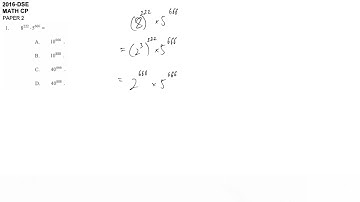 2016-DSE
MATH CP
PAPER 2
1. 8²²² · 5⁶⁶⁶ =
A. 10⁶⁶⁶ .
B.
C. 40⁶⁶⁶ .
D.
(8)²²² × 5⁶⁶⁶
= (2³)²²² × 5⁶⁶⁶
= 2⁶⁶⁶ × 5⁶⁶⁶